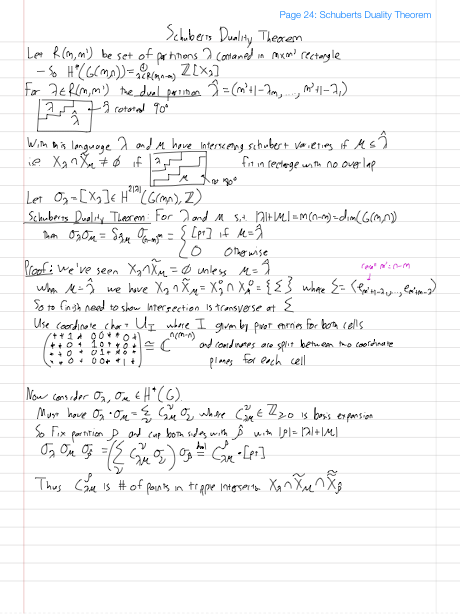 Page 24: Schuberts Duality Theorem
Schuberts Duality Theorem
Let R(m,m') be set of partitions λ contained in m×m' rectangle
- So H*(G(m,n)) = ⊕_{λ∈R(m,n-m)} ℤ[X_λ]
For λ∈R(m,m') the dual partition λ̂ = (m'+1-λ_m, ..., m'+1-λ_1)
λ λ̂ rotated 90°
With this language λ and μ have intersecting schubert varieties if μ ≤ λ̂
i.e X_λ ∩ X̃_μ ≠ ∅ if λ μ rot 180° fit in rectangle with no overlap
Let σ_λ = [X_λ] ∈ H^{2|λ|}(G(m,n), ℤ)
Schuberts Duality Theorem: For λ and μ s.t. |λ|+|μ| = m(n-m) = dim(G(m,n))
then σ_λσ_μ = δ_{λ̂μ} σ_{(n-m)^m} = { [pt] if μ = λ̂
0 Otherwise
Proof: We've seen X_λ ∩ X̃_μ = ∅ unless μ = λ̂
recall m' = n-m
When μ = λ̂ we have X_λ ∩ X̃_μ = X_λ° ∩ X̃_μ° = {Σ} where Σ =
So to finish need to show intersection is transverse at Σ
Use coordinate chart U_I where I given by pivot entries for both cells
≅ ℂ^{m(n-m)} and coordinates are split between two coordinate
planes for each cell
Now consider σ_λ, σ_μ ∈ H*(G).
Must have σ_λ · σ_μ = Σ_ν C^ν_{λμ} σ_ν where C^ν_{λμ} ∈ ℤ_{≥0} is basis expansion
So Fix partition ρ and cup both sides with ρ̂ with |ρ| = |λ|+|μ|
σ_λ σ_μ σ_ρ̂ = (Σ_ν C^ν_{λμ} σ_ν) σ_ρ̂ = C^ρ_{λμ} · [pt]
Thus C^ρ_{λμ} is # of points in tripple intersection X_λ ∩ X̃_μ ∩ X̃̃_ρ̂